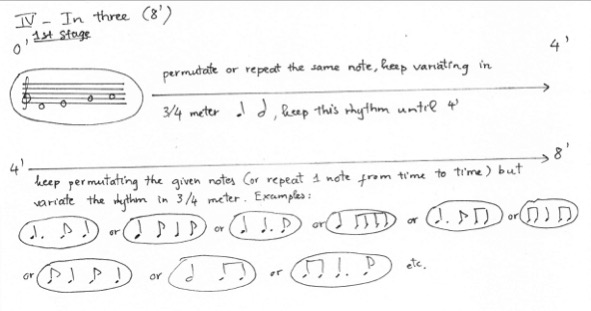 IV - In three (8')
1st Stage
0' 4'
permutate or repeat the same note, keep variating in
3/4 meter ♩ 𝅗𝅥 , keep this rhythm until 4'
4' 8'
keep permutating the given notes (or repeat 1 note from time to time) but
variate the rhythm in 3/4 meter. Examples:
or or or or or
or or or etc.